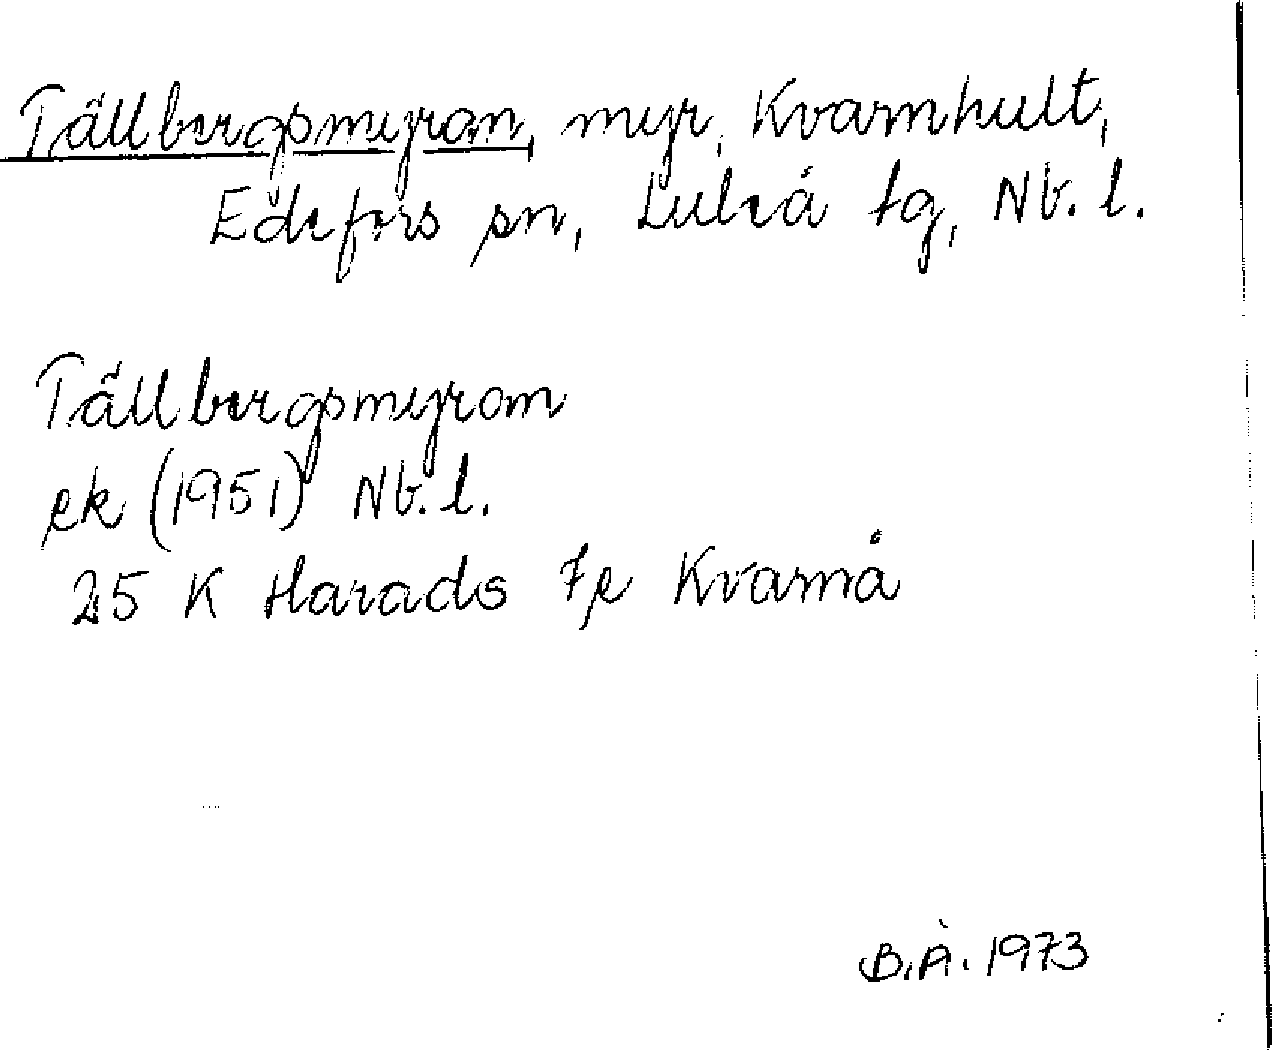 Tällbergsmyran, myr, Kvarnhult,
Edefors sn, Luleå tg, Nb. l.
Tällbergsmyran
ek (1951) Nb. l.
25 K Harads 7e Kvarnå
B.Å. 1973